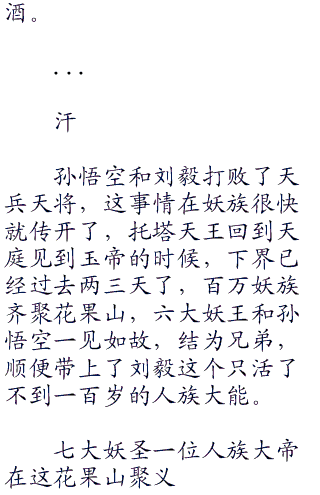 酒。
...
汗
孙悟空和刘毅打败了天
兵天将，这事情在妖族很快
就传开了，托塔天王回到天
庭见到玉帝的时候，下界已
经过去两三天了，百万妖族
齐聚花果山，六大妖王和孙
悟空一见如故，结为兄弟，
顺便带上了刘毅这个只活了
不到一百岁的人族大能。
七大妖圣一位人族大帝
在这花果山聚义